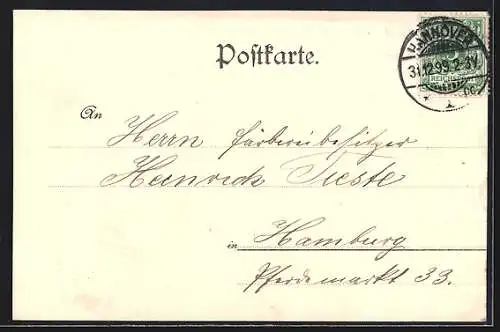 Postkarte.
HANNOVER
31.12.99. 2-3V.
REICHSPOST
1
An
Herrn Färbereibesitzer
Heinrich Tieste
in Hamburg
Pferdemarkt 33.